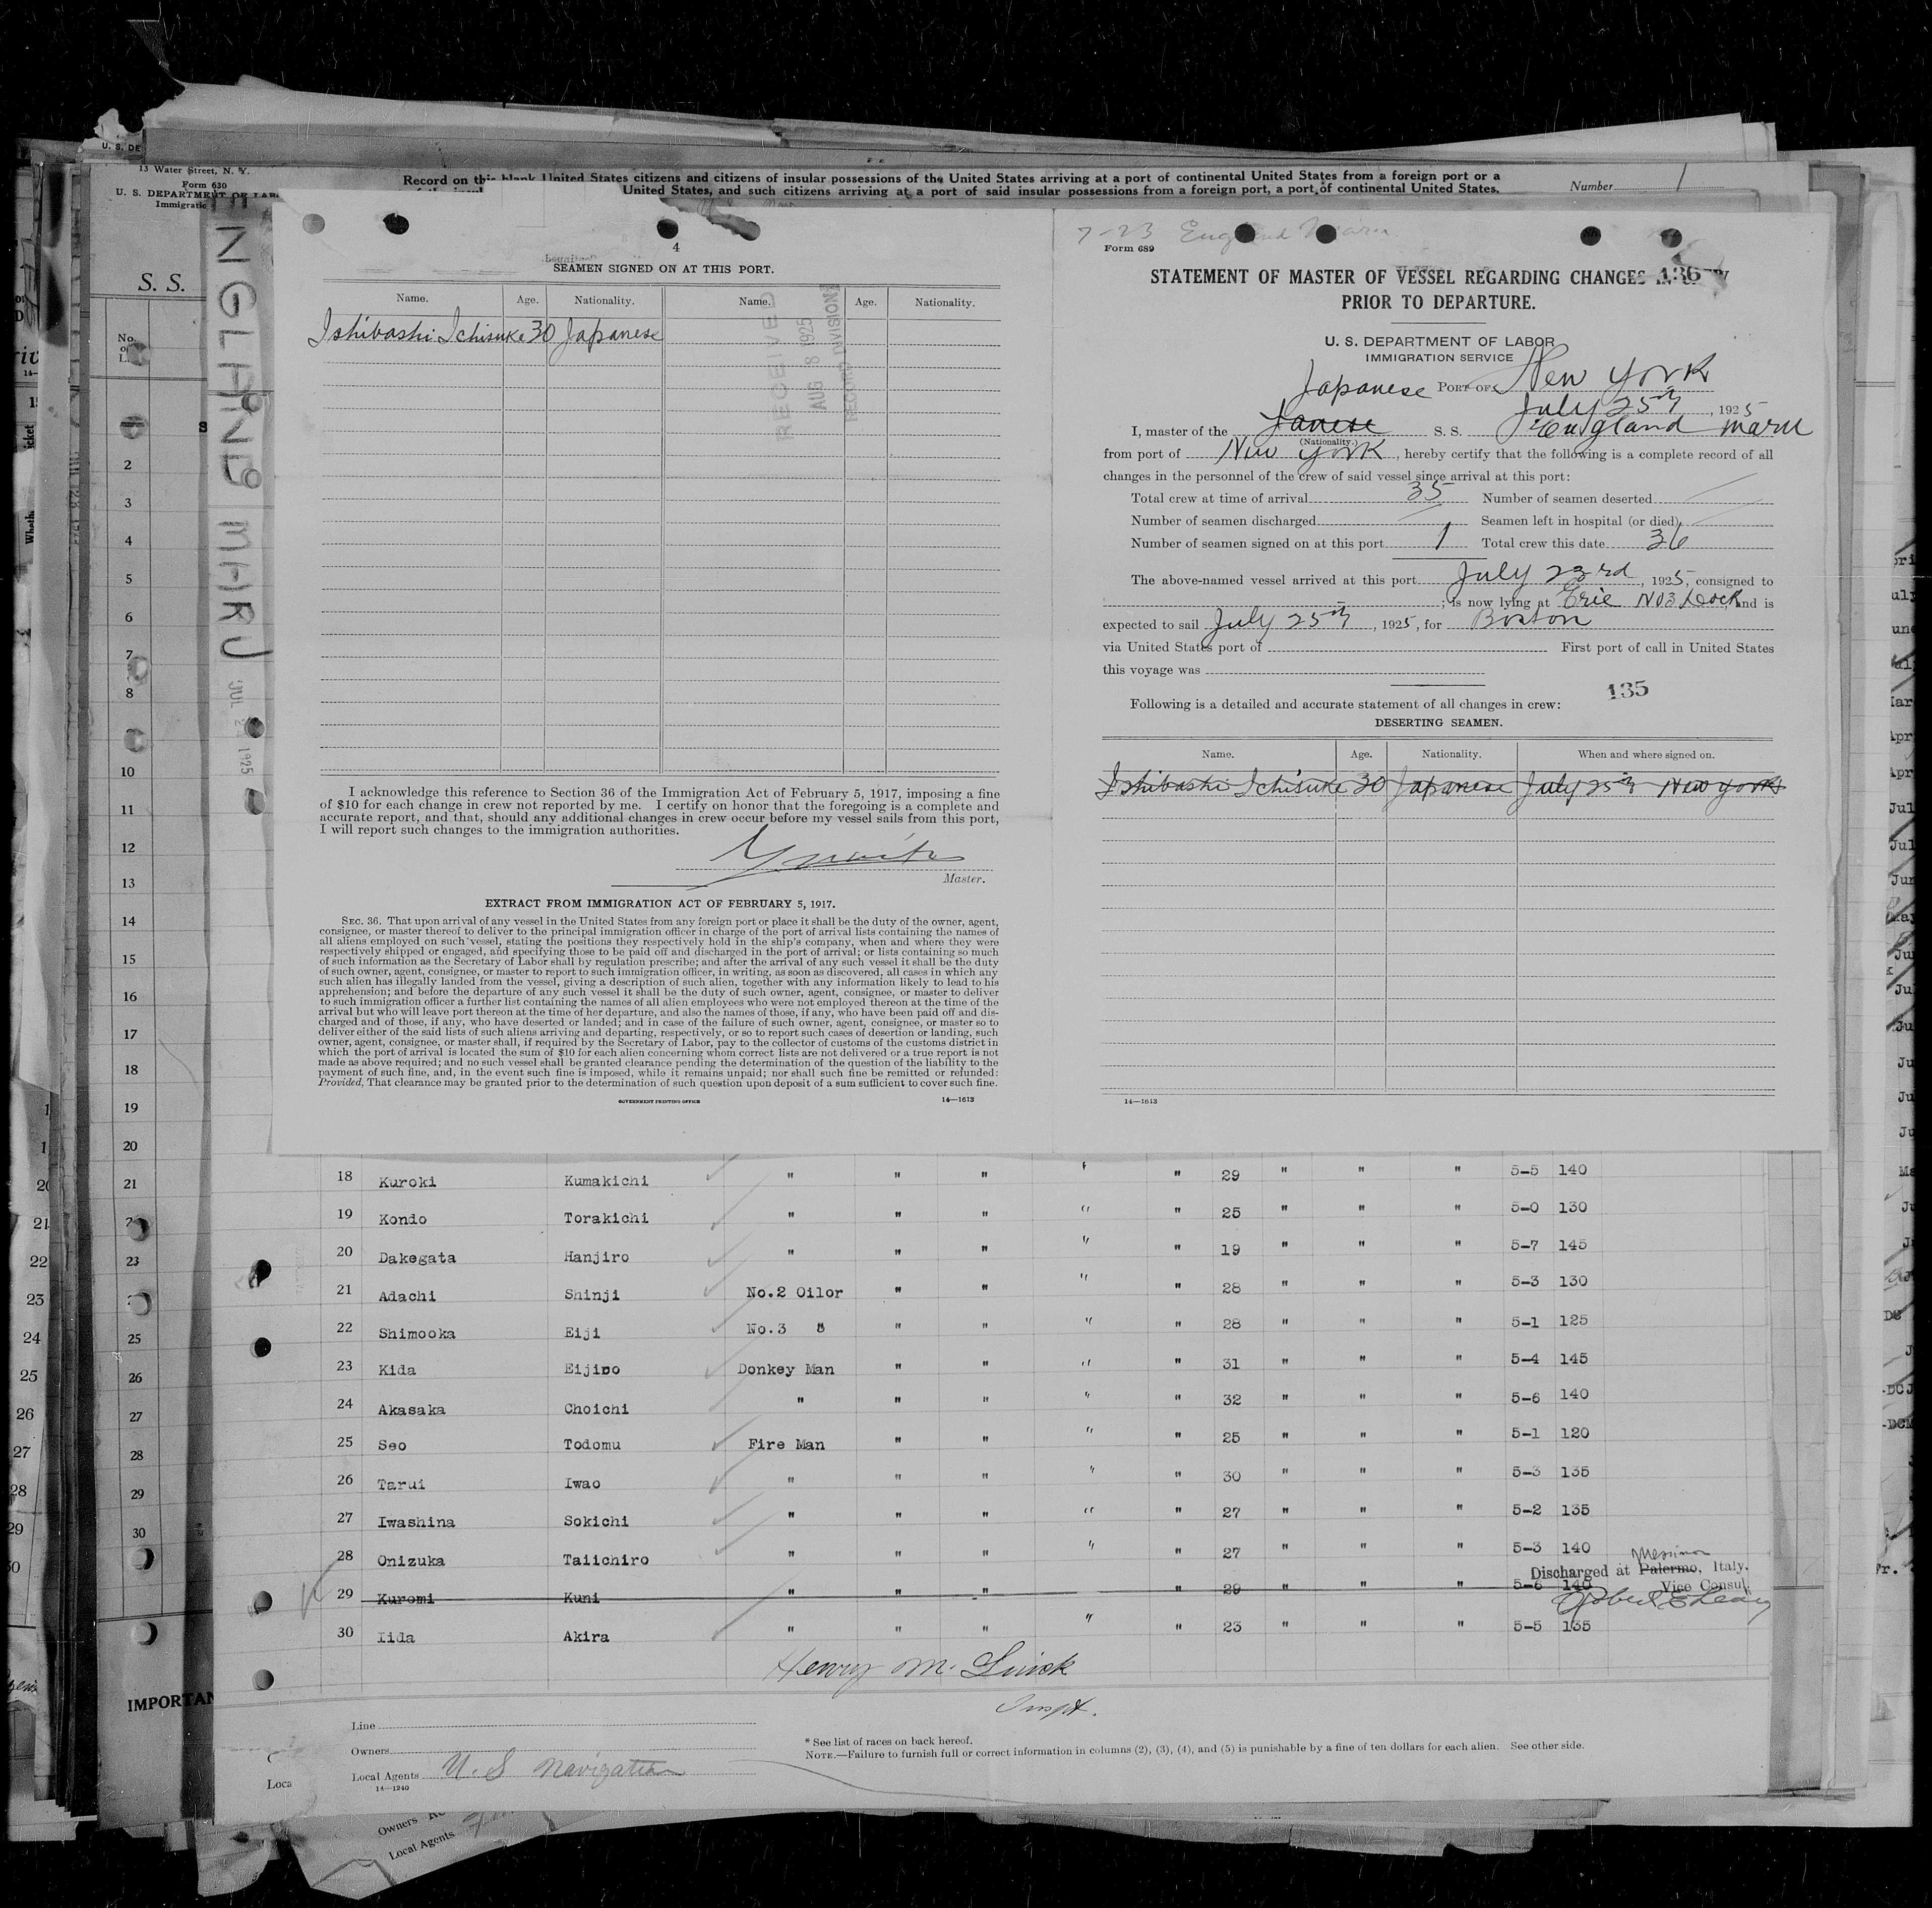 U. S. DE
13 Water Street, N. Y.
Form 630
U. S. DEPARTMENT OF LAB
Immigratio
Record on this blank United States citizens and citizens of insular possessions of the United States arriving at a port of continental United States from a foreign port or a
United States, and such citizens arriving at a port of said insular possessions from a foreign port, a port of continental United States.
Number 1
S. S.
NGLAND MARU
JUL 1925
4
SEAMEN SIGNED ON AT THIS PORT.
Name. Age. Nationality. Name. Age. Nationality.
Ishibashi Ichisuke 30 Japanese
RECEIVED
AUG 8 1925
RECORD DIVISION
I acknowledge this reference to Section 36 of the Immigration Act of February 5, 1917, imposing a fine
of $10 for each change in crew not reported by me. I certify on honor that the foregoing is a complete and
accurate report, and that, should any additional changes in crew occur before my vessel sails from this port,
I will report such changes to the immigration authorities.
Master.
EXTRACT FROM IMMIGRATION ACT OF FEBRUARY 5, 1917.
SEC. 36. That upon arrival of any vessel in the United States from any foreign port or place it shall be the duty of the owner, agent,
consignee, or master thereof to deliver to the principal immigration officer in charge of the port of arrival lists containing the names of
all aliens employed on such vessel, stating the positions they respectively hold in the ship's company, when and where they were
respectively shipped or engaged, and specifying those to be paid off and discharged in the port of arrival; or lists containing so much
of such information as the Secretary of Labor shall by regulation prescribe; and after the arrival of any such vessel it shall be the duty
of such owner, agent, consignee, or master to report to such immigration officer, in writing, as soon as discovered, all cases in which any
such alien has illegally landed from the vessel, giving a description of such alien, together with any information likely to lead to his
apprehension; and before the departure of any such vessel it shall be the duty of such owner, agent, consignee, or master to deliver
to such immigration officer a further list containing the names of all alien employees who were not employed thereon at the time of the
arrival but who will leave port thereon at the time of her departure, and also the names of those, if any, who have been paid off and dis-
charged and of those, if any, who have deserted or landed; and in case of the failure of such owner, agent, consignee, or master so to
deliver either of the said lists of such aliens arriving and departing, respectively, or so to report such cases of desertion or landing, such
owner, agent, consignee, or master shall, if required by the Secretary of Labor, pay to the collector of customs of the customs district in
which the port of arrival is located the sum of $10 for each alien concerning whom correct lists are not delivered or a true report is not
made as above required; and no such vessel shall be granted clearance pending the determination of the question of the liability to the
payment of such fine, and, in the event such fine is imposed, while it remains unpaid; nor shall such fine be remitted or refunded:
Provided, That clearance may be granted prior to the determination of such question upon deposit of a sum sufficient to cover such fine.
GOVERNMENT PRINTING OFFICE 14—1613
7-23 England Maru
Form 689
STATEMENT OF MASTER OF VESSEL REGARDING CHANGES IN
136
PRIOR TO DEPARTURE.
U. S. DEPARTMENT OF LABOR
IMMIGRATION SERVICE
Japanese PORT OF New York
July 25th, 1925
I, master of the Janese S. S. England Maru
(Nationality.)
from port of New York, hereby certify that the following is a complete record of all
changes in the personnel of the crew of said vessel since arrival at this port:
Total crew at time of arrival 35 Number of seamen deserted
Number of seamen discharged Seamen left in hospital (or died)
Number of seamen signed on at this port 1 Total crew this date 36
The above-named vessel arrived at this port July 23rd, 1925, consigned to
; is now lying at Erie No3 Dock, and is
expected to sail July 25th, 1925, for Boston
via United States port of First port of call in United States
this voyage was
135
Following is a detailed and accurate statement of all changes in crew:
DESERTING SEAMEN.
Name. Age. Nationality. When and where signed on.
Ishibashi Ichisuke 30 Japanese July 25th New York
14—1613
18 Kuroki Kumakichi " " " " " 29 " " " 5-5 140
19 Kondo Torakichi " " " " " 25 " " " 5-0 130
20 Dakegata Hanjiro " " " " " 19 " " " 5-7 145
21 Adachi Shinji No.2 Oilor " " " " 28 " " " 5-3 130
22 Shimooka Eiji No.3 " " " " " 28 " " " 5-1 125
23 Kida Eijiro Donkey Man " " " " 31 " " " 5-4 145
24 Akasaka Choichi " " " " " 32 " " " 5-6 140
25 Seo Todomu Fire Man " " " " 25 " " " 5-1 120
26 Tarui Iwao " " " " " 30 " " " 5-3 135
27 Iwashina Sokichi " " " " " 27 " " " 5-2 135
28 Onizuka Taiichiro " " " " " 27 " " " 5-3 140
Messina
Discharged at Palermo, Italy.
29 Kuromi Kuni " " " " 29 " " " 5-6 140
Vice Consul
30 Iida Akira " " " " " 23 " " " 5-5 135
Henry M.
Inspt.
Line
Owners
Local Agents U. S Navigation
14—1240
* See list of races on back hereof.
NOTE.—Failure to furnish full or correct information in columns (2), (3), (4), and (5) is punishable by a fine of ten dollars for each alien. See other side.
IMPORTAN
Loca
Owners
Local Agents